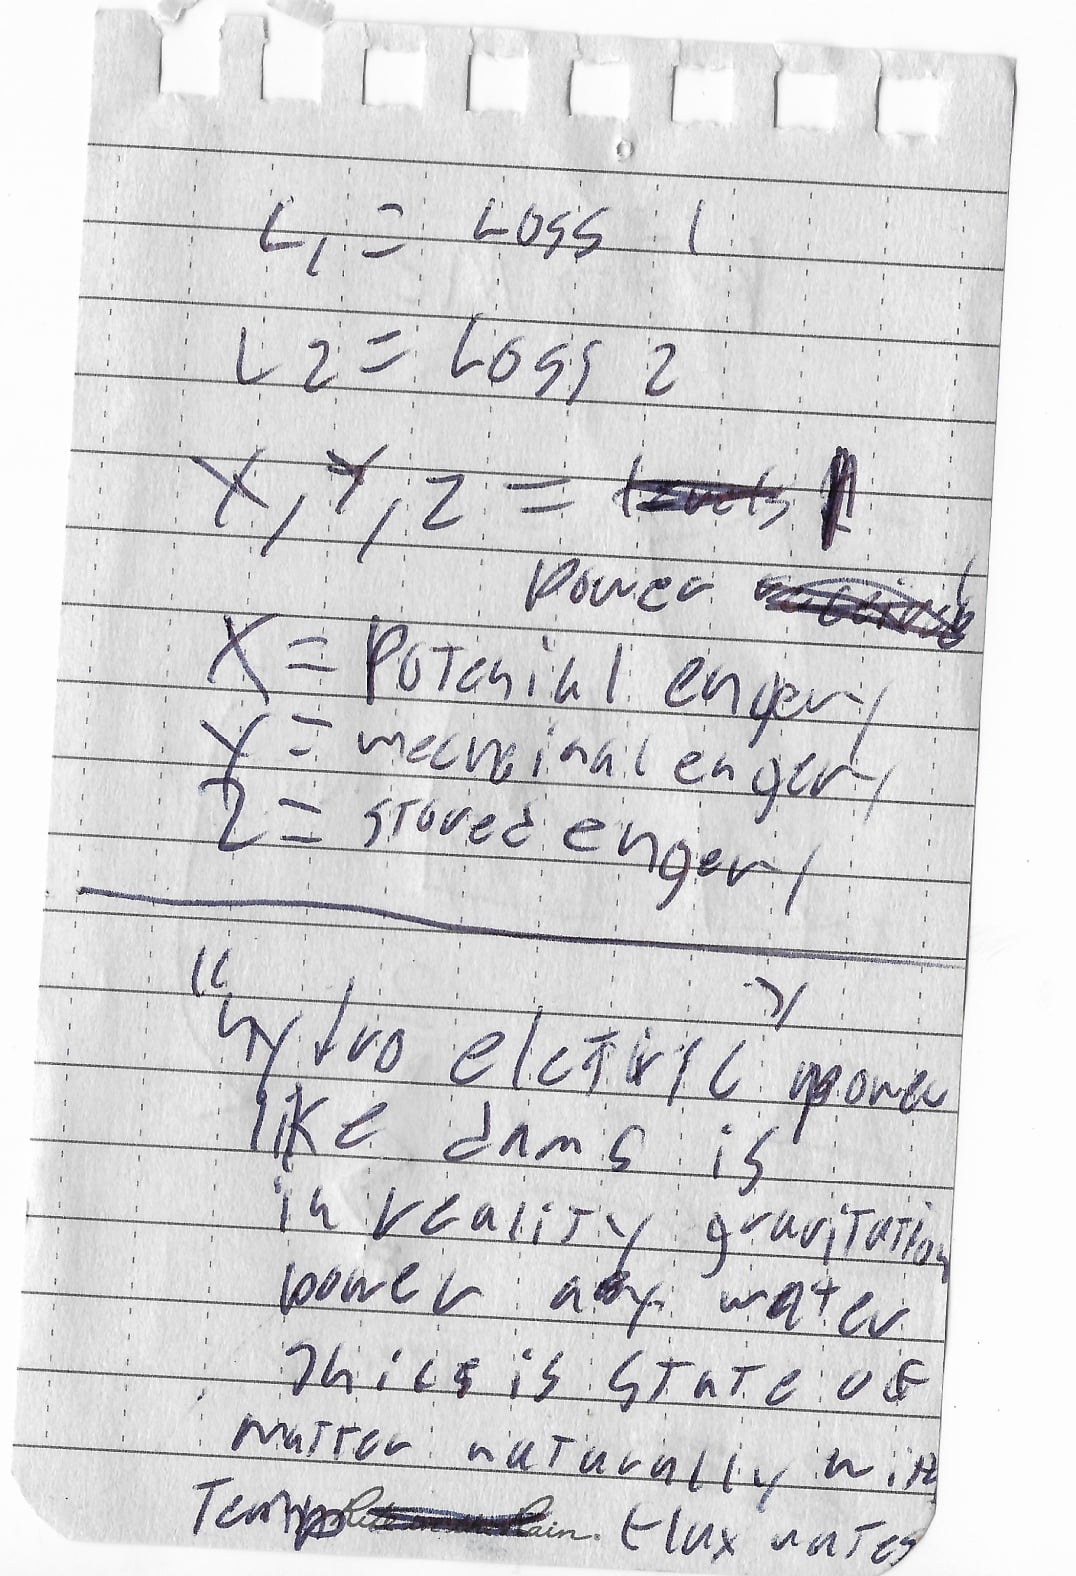 L1 = Loss 1
L2 = Loss 2
X, Y, Z =
Power
X = Potenial engery
Y = mecnginal engery
Z = stored engery
"hydro elctiric" power
like dams is
in reality gravitation
power water
is state of
matter naturally with
Temp flux rates